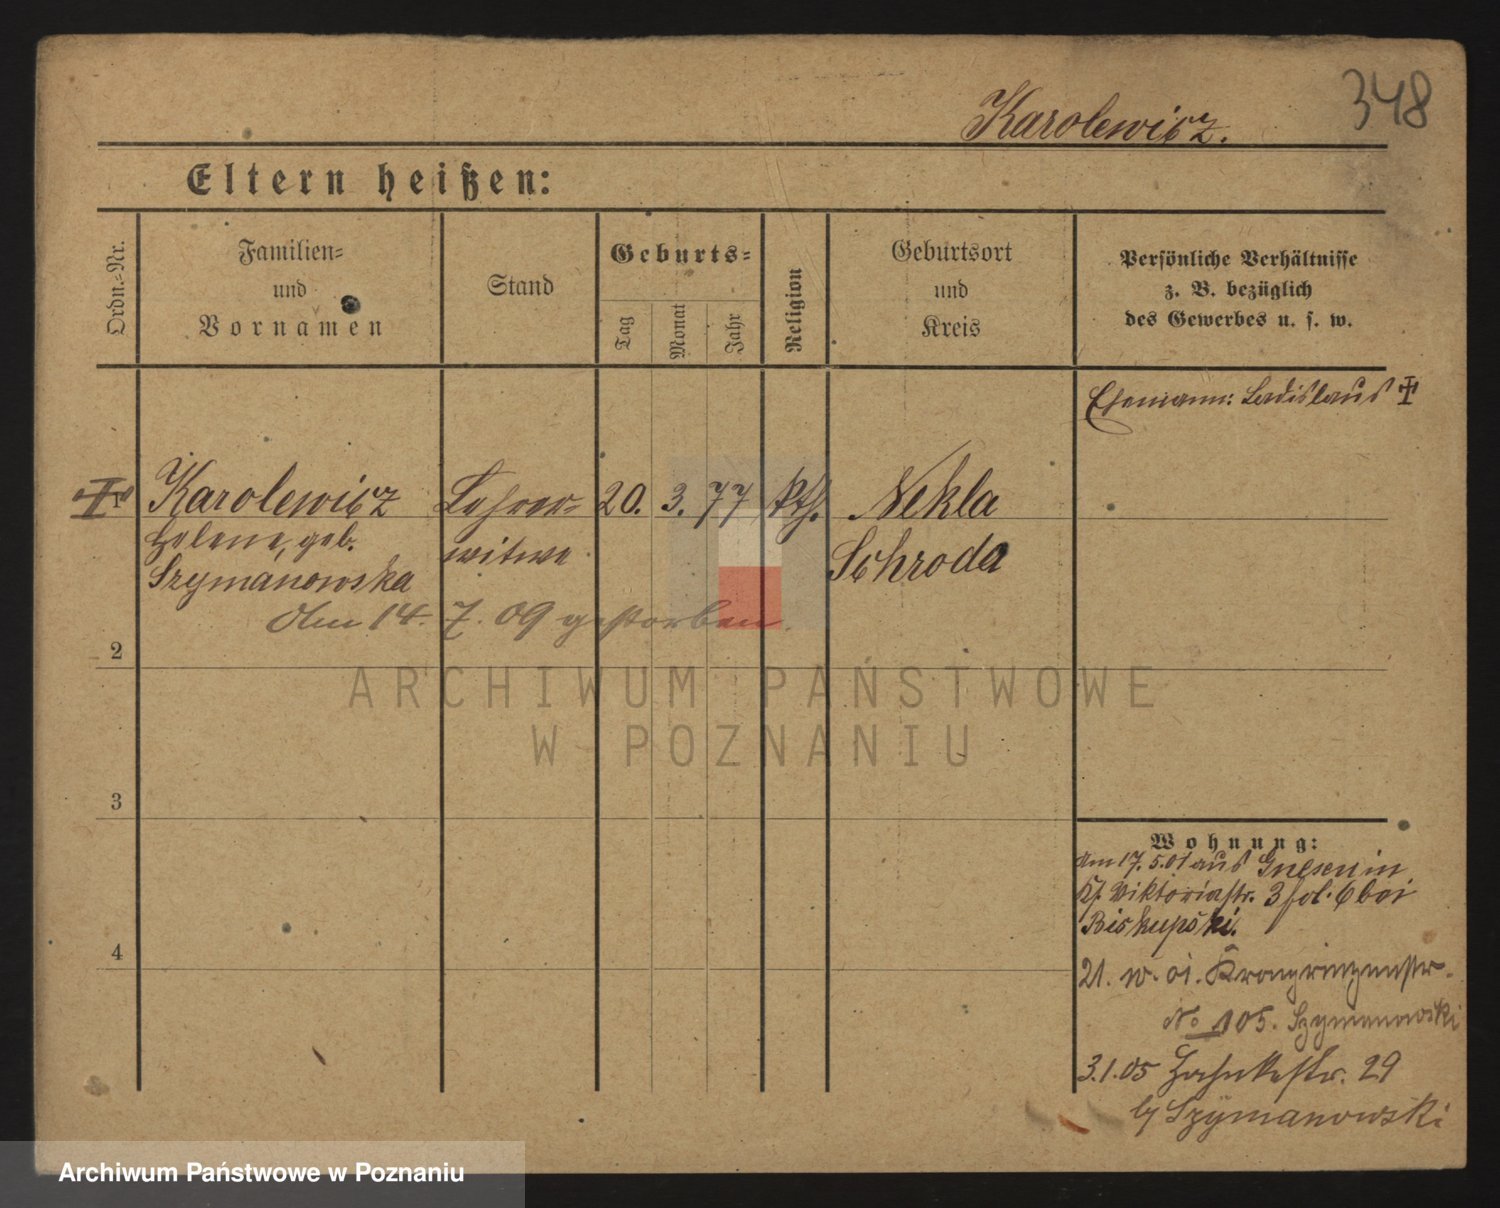 348
Karolewicz.
Eltern heißen:
Ordn.-Nr.
Familien-
und
Vornamen
Stand
Geburts-
Tag
Monat
Jahr
Religion
Geburtsort
und
Kreis
Persönliche Verhältnisse
z. B. bezüglich
des Gewerbes u. s. w.
Ehemann: Ladislaus †
1 Karolewicz Lehrer- 20. 3. 77 kth. Nekla
Helene, geb. witwe Schroda
Szymanowska
Am 14. 7. 09 gestorben.
2
ARCHIWUM PAŃSTWOWE
W POZNANIU
3
4
Wohnung:
Am 17. 5. 01 aus Gnesen in
Viktoriastr. 3 bei
Biskupski.
21. 01. Kronprinzenstr.
No 105. Szymanowski
3.1.05 29
Szymanowski
Archiwum Państwowe w Poznaniu